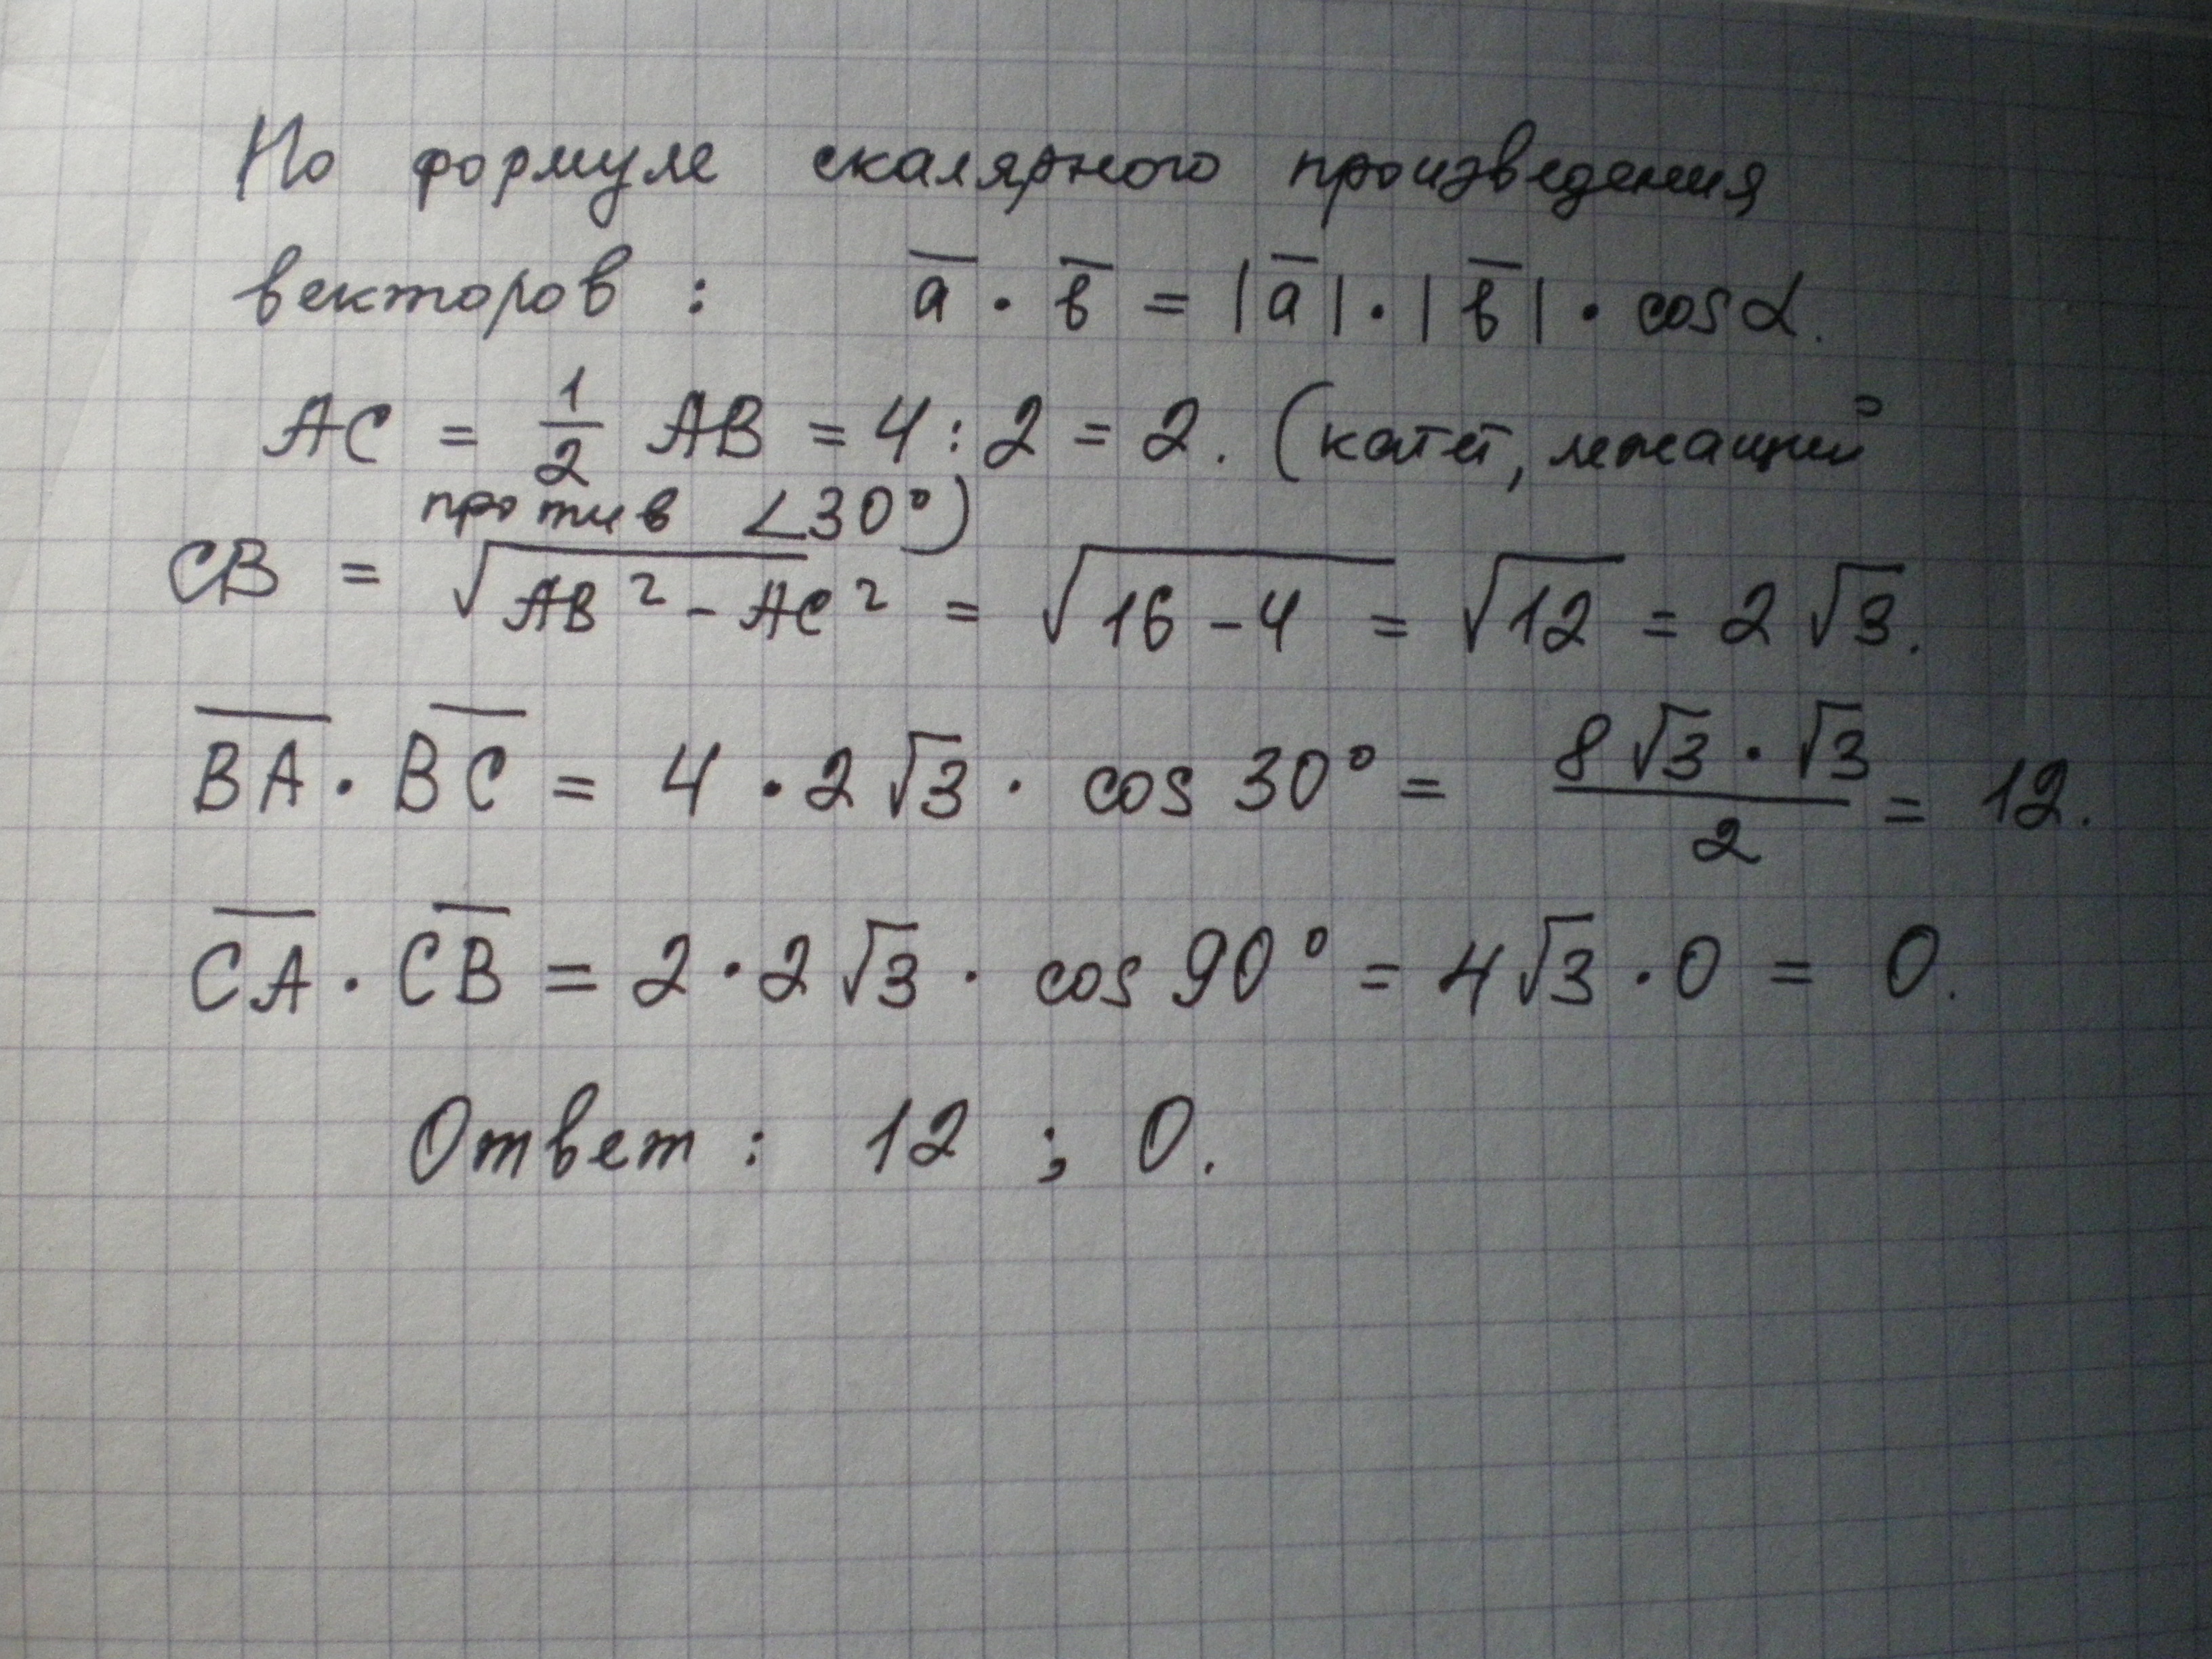 По формуле скалярного произведения
векторов : a̅ · b̅ = |a̅| · |b̅| · cos α.
AC = 1/2 AB = 4 : 2 = 2. (катет, лежащий
против ∠30°)
CB = √(AB² - AC²) = √(16 - 4) = √12 = 2√3.
B̅A̅ · B̅C̅ = 4 · 2√3 · cos 30° = (8√3 · √3)/2 = 12.
C̅A̅ · C̅B̅ = 2 · 2√3 · cos 90° = 4√3 · 0 = 0.
Ответ : 12 ; 0.